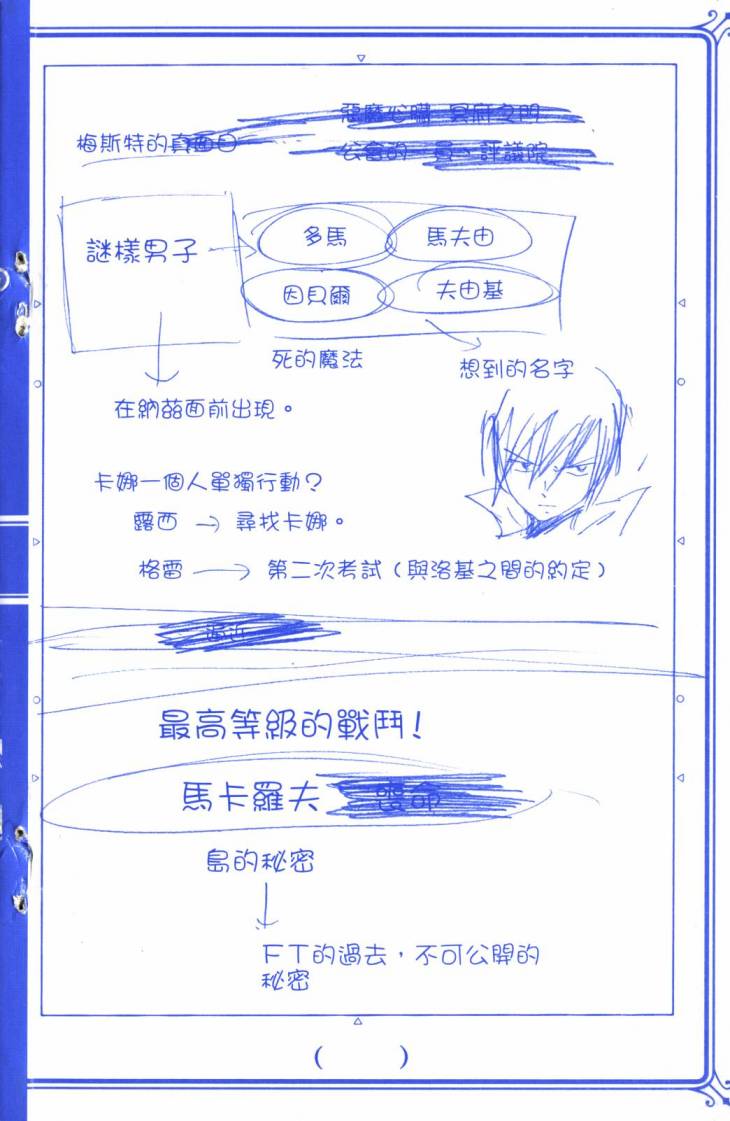 惡魔心臟 冥府之門
梅斯特的真面目
公會的 員、評議院
謎樣男子
多馬
馬夫由
因貝爾
夫由基
死的魔法
想到的名字
在納茲面前出現。
卡娜一個人單獨行動？
露西 → 尋找卡娜。
格雷 → 第二次考試（與洛基之間的約定）
最高等級的戰鬥！
馬卡羅夫 喪命
島的秘密
ＦＴ的過去，不可公開的
秘密
(　　)